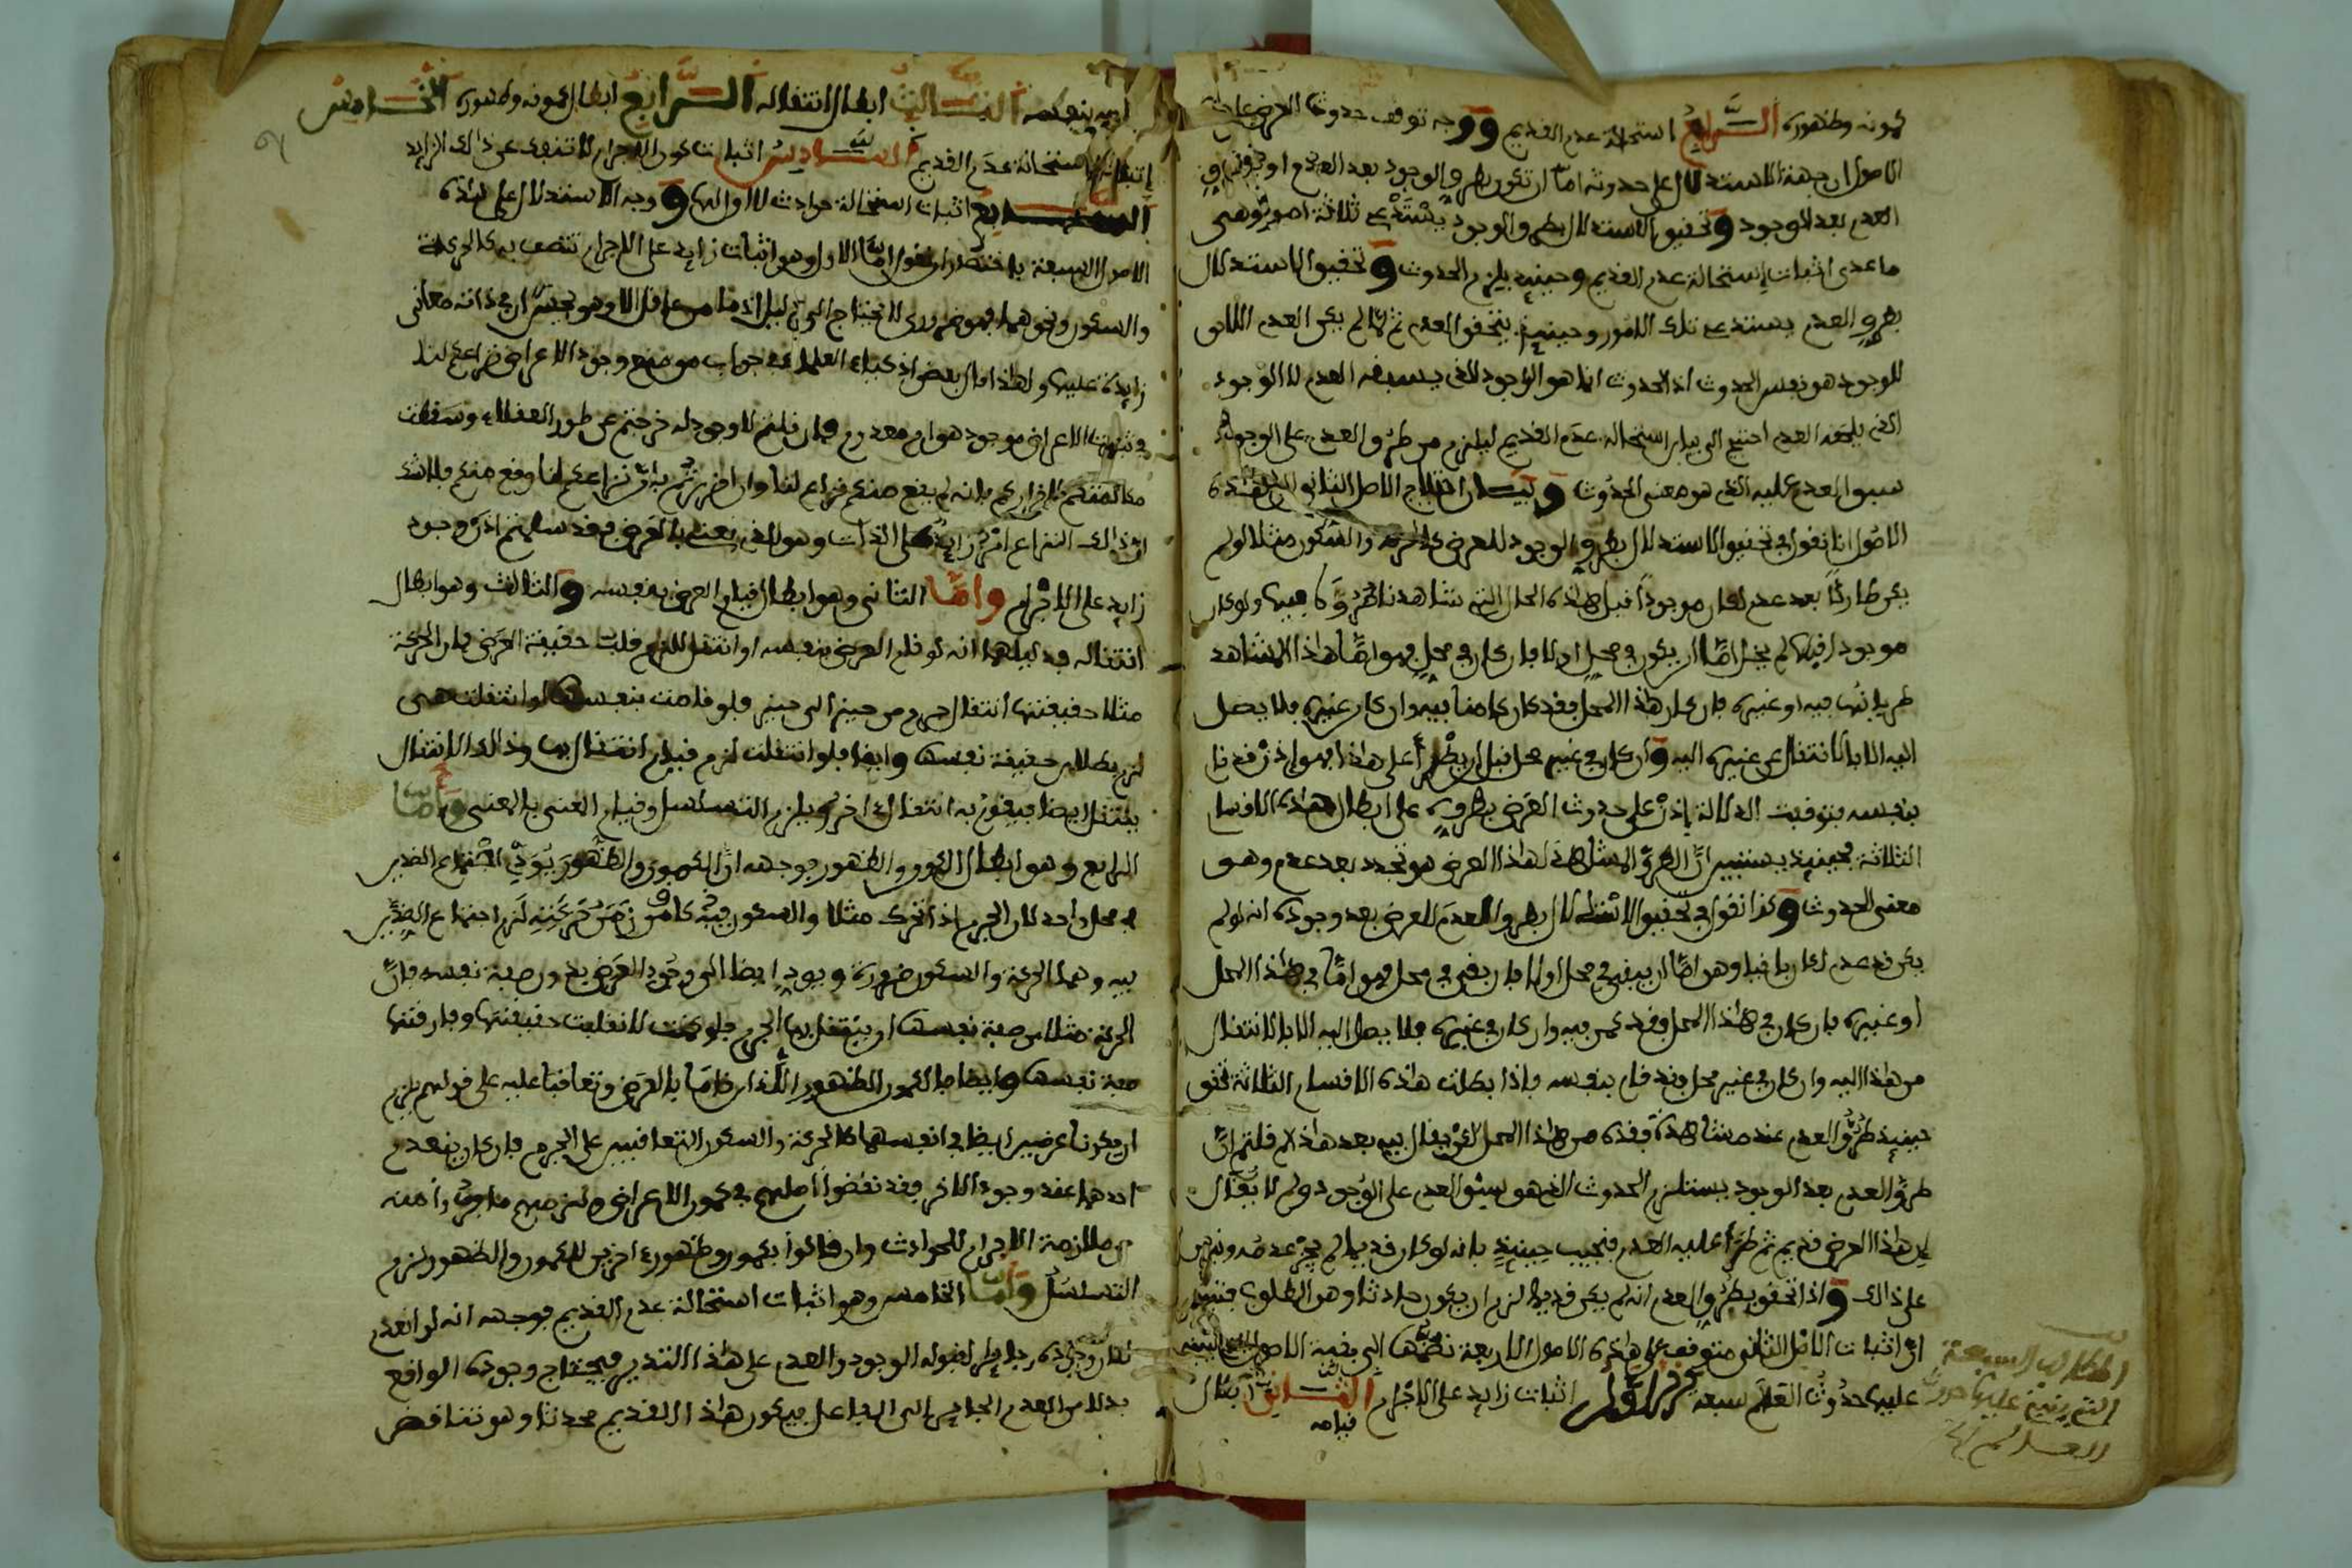 كمونه وظهوره الرابع استحالة عدم القديم ووجه توقف حدوث العرض على هذه
الاصول ان جهة الاستدلال على حدوثه اما ان تكون بطروّ الوجود بعد العدم او بطروّ
العدم بعد الوجود وتحقيق الاستدلال بطرو الوجود يستدعي ثلاثة امور وهي
ما عدى اثبات استحالة عدم القديم وحينيذ يلزم الحدوث وتحقيق الاستدلال
بطروّ العدم يستدعي تلك الامور وحينيذ يتحقق العدم ثم لما لم يكن العدم اللاحق
للوجود هو نفس الحدوث اذ الحدوث انما هو الوجود الذي يسبقه العدم لا الوجود
الذي يلحقه العدم احتيج الى بيان استحالة عدم القديم ليلزم من طروّ العدم على الوجود
سبق العدم عليه الذي هو معنى الحدوث وبيان احتياج الاصل الثاني الى هذه
الاصول انا نقول في تحقيق الاستدلال بطروّ الوجود للعرض كالحركة والسكون مثلا لو لم
يكن طاريًا بعد عدم لكان موجودًا قبل هذه الحال التي شاهدنا طروّها فيها ولو كان
موجودا فيها لم يخل امّا ان يكون في محل او لا فان كان في محل فهو امّا هذا المشاهد
طريانها فيه او غيره فان كان هذا المحل فقد كان كامنا فيه وان كان غيره فلا يصل
اليه الا بالانتقال عن غيره اليه وان كان في غير محل قبل ان يطرأ على هذا فهو اذن قد قام
بنفسه فتوقفت الدلالة اذن على حدوث العرض بطروه على ابطال هذه الاقسام
الثلاثة فحينيذ يستبين انّ الطروّ المشاهد لهذا العرض هو تجدد بعد عدم وهو
معنى الحدوث وكذا نقول في تحقيق الاستدلال بطرو العدم للعرض بعد وجوده انه لو لم
يكن قد عدم لكان باقيا وهو امّا ان يبقى في محل او لا فان بقي في محل فهو امّا في هذا المحل
او غيره فان كان في هذا المحل فقد كمن فيه وان كان في غيره فلا يصل اليه الا بالانتقال
من هذا اليه وان كان في غير محل فقد قام بنفسه فاذا بطلت هذه الاقسام الثلاثة تحقق
حينيذ طروّ العدم عند مشاهدة فقده من هذا المحل لكن يقال فيه بعد هذا لم قلتم انّ
طروّ العدم بعد الوجود يستلزم الحدوث الذي هو سبق العدم على الوجود ولم لا يقال
ان هذا العرض قديم ثم طرأ عليه العدم فنجيب حينيذ بانه لو كان قديما لم يجز عدمه ونبرهن
على ذالك واذا تحقق بطرو العدم انه لم يكن قديما لزم ان يكون حادثا وهو المطلوب فتبين
انّ اثبات الاصل الثاني متوقف على هذه الاصول الاربعة نضمّها الى بقية الاصول التي ينبني
عليها حدوث العالم سبعة الاول اثبات زايد على الاجرام الثاني ابطال
قيامه
المطالب السبعة
التي ينبني عليها حدوث
العالم
بنفسه الثالث ابطال انتقاله الرابع ابطال كمونه وظهوره الخامس
اثبات استحالة عدم القديم السادس اثبات كون الاجرام لا تنفك عن ذالك الزايد
السابع اثبات استحالة حوادث لا اول لها ووجه الاستدلال على هذه
الاصول السبعة باختصار ان نقول امّا الاول وهو اثبات زايد على الاجرام تتصف به كالحركة
والسكون ونحوهما فهو ضروري لا يحتاج الى دليل اذ ما من عاقل الا وهو يحسّ ان في ذاته معاني
زايدة عليها ولهذا قال بعض اذكياء العلماء في جواب من منع وجود الاعراض نزاعكم لنا
في ثبوت الاعراض موجود هو ام معدوم فان قلتم لا وجود له خرجتم عن طور العقلاء وسقطت
مكالمتكم لاقراركم بانه لم يقع منكم نزاع لنا وان اقررتم بان نزاعكم لنا وقع منكم فلا شك
انّ ذالك النزاع امر زايد على الذات وهو الذي نعني بالعرض فقد سلمتم اذن وجود
زايد على الاجرام وامّا الثاني وهو ابطال قيام العرض بنفسه والثالث وهو ابطال
انتقاله فدليلهما انه لو قام العرض بنفسه او انتقل للزم قلب حقيقة العرض فان الحركة
مثلا حقيقتها انتقال جرم من حيز الى حيز فلو قامت بنفسها او انتقلت هي
لزم بطلان حقيقة نفسها وايضا فلو انتقلت لزم قيام انتقال بها وذالك الانتقال
ينتقل ايضا فيقوم به انتقال اخر ويلزم التسلسل وقيام المعنى بالمعنى وامّا
الرابع وهو ابطال الكمون والظهور فوجهه انّ الكمون والظهور يؤدي الى اجتماع الضدين
في محل واحد لان الجرم اذا تحرك مثلا والسكون فيه كامن زمن حركته لزم اجتماع الضدين
فيه وهما الحركة والسكون ضرورة ويودي ايضا الى وجود العرض بدون صفة نفسه فانّ
الحركة مثلا من صفة نفسها ان ينتقل بها الجرم فلو كمنت لانقلبت حقيقتها وفارقتها
صفة نفسها وايضا فالكمون والظهور اللذان قاما بالعرض وتعاقبا عليه على قولهم يلزم
ان يكونا عرضين ايضا في انفسهما كالحركة والسكون المتعاقبين على الجرم فان كان ينعدم
احدهما عند وجود الاخر فقد نقضوا اصلهم في كمون الاعراض ولزمهم ما فروا منه
من ملازمة الاجرام للحوادث وان قالوا بكمون وظهور اخرين للكمون والظهور لزم
التسلسل وامّا الخامس وهو اثبات استحالة عدم القديم فوجهه انه لو انعدم
لكان وجوده جايزا لقبوله الوجود والعدم على هذا التقدير فيحتاج وجوده الواقع
بدلا من العدم الجايز الى الفاعل فيكون هذا القديم محدثا وهو تناقض